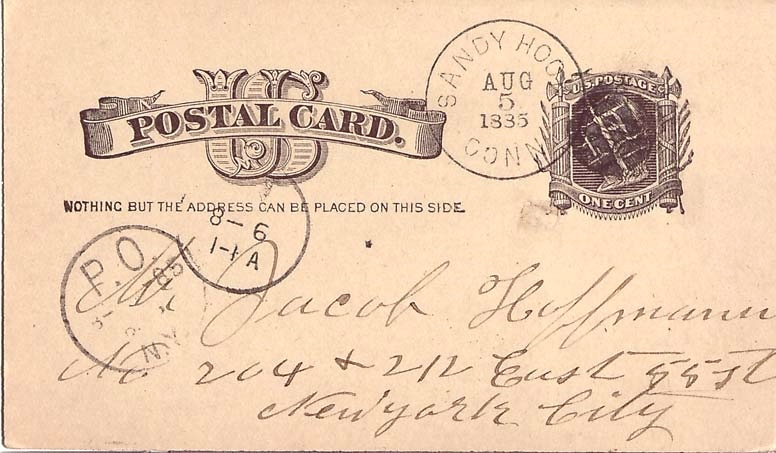 US
POSTAL CARD.
NOTHING BUT THE ADDRESS CAN BE PLACED ON THIS SIDE.
SANDY HOOK
AUG
5
1885
CONN
U.S. POSTAGE
ONE CENT
8-6
1-1 A
P.O.
85
N.Y.
Mr. Jacob Hoffmann
No 204 & 212 East 55 st
New york City